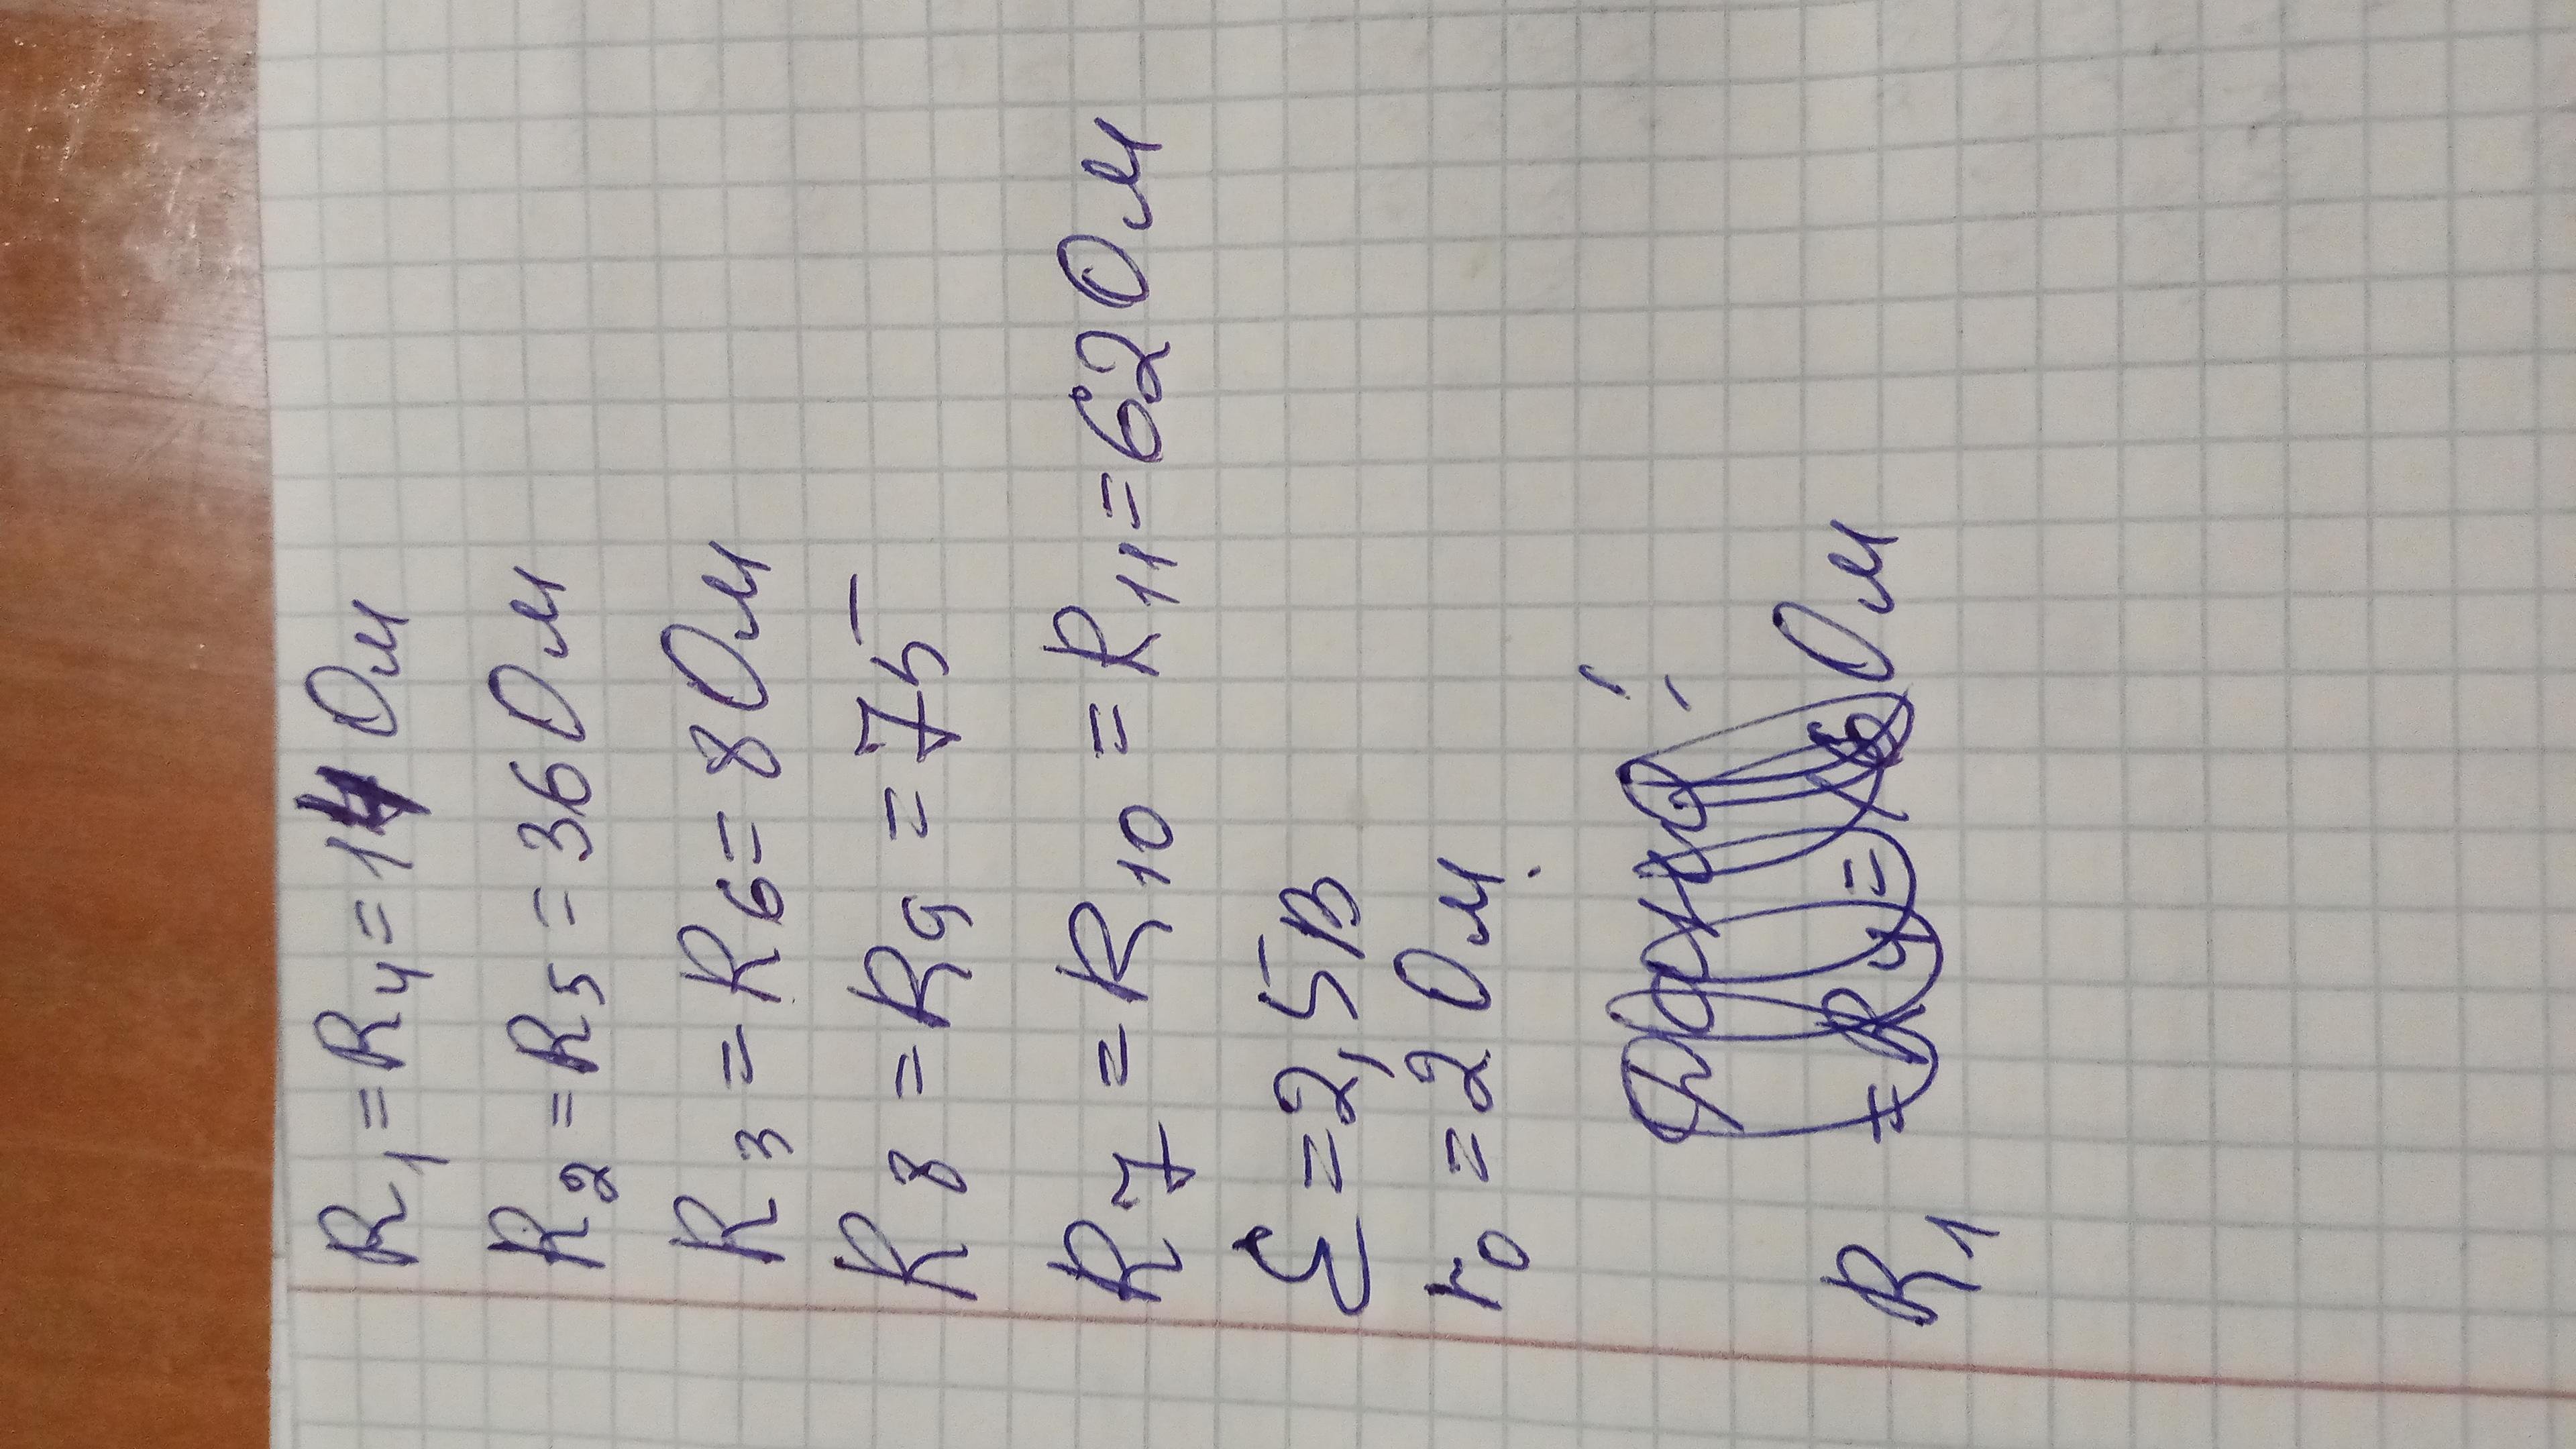 R₁ = R₄ = 14 Ом
R₂ = R₅ = 36 Ом
R₃ = R₆ = 8 Ом
R₈ = R₉ = 75
R₇ = R₁₀ = R₁₁ = 62 Ом
Ɛ = 2,5В
r₀ = 2 Ом.
R₁ = R₄ = Ом